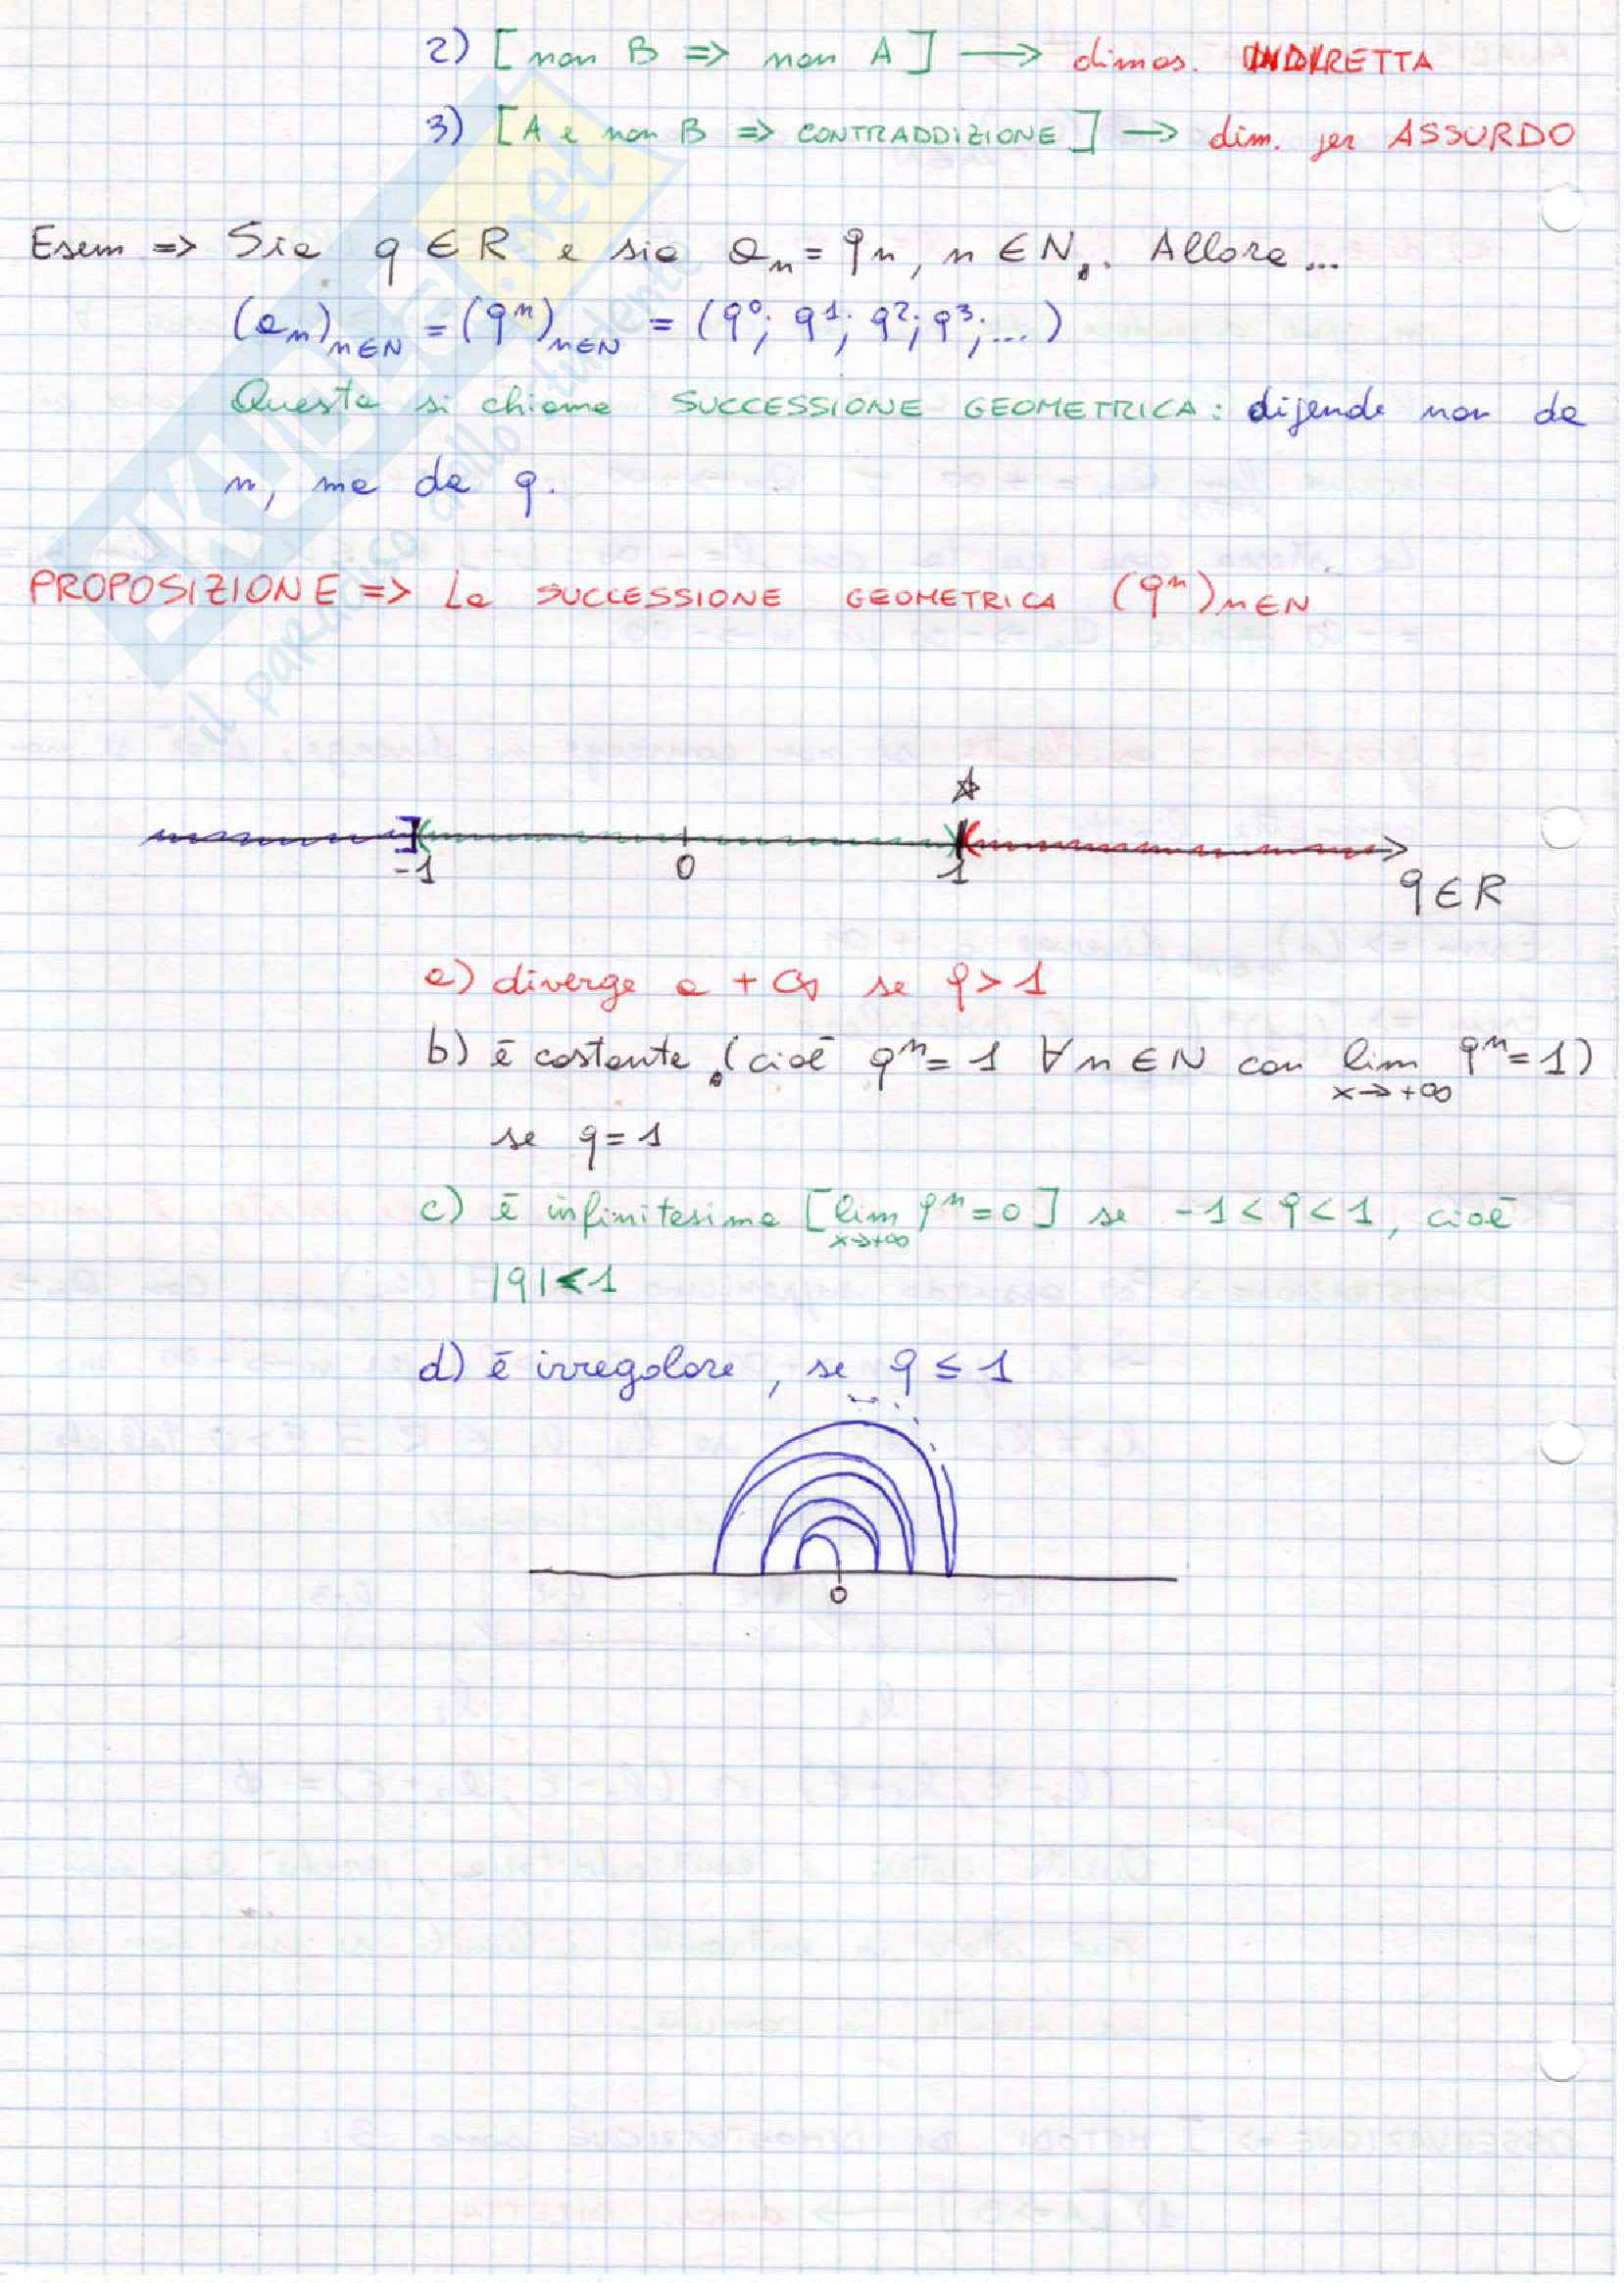 2) [non B => non A] → dimos. INDIRETTA
3) [A e non B => CONTRADDIZIONE] → dim. per ASSURDO
Esem => Sia q ∈ R e sia aₙ = qn, n ∈ N. Allora...
(aₙ)n∈N = (qⁿ)n∈N = (q⁰; q¹; q²; q³; ...)
Questa si chiama SUCCESSIONE GEOMETRICA: dipende non da
n, ma da q.
PROPOSIZIONE => La SUCCESSIONE GEOMETRICA (qⁿ)n∈N
-1 0 1
q ∈ R
a) diverge a +∞ se q > 1
b) è costante (cioè qⁿ = 1 ∀ n ∈ N con lim x→+∞ qⁿ = 1)
se q = 1
c) è infinitesima [lim x→+∞ qⁿ = 0] se -1 < q < 1, cioè
|q| < 1
d) è irregolare, se q ≤ 1
0
SKUOLA.net
il paradiso dello studente